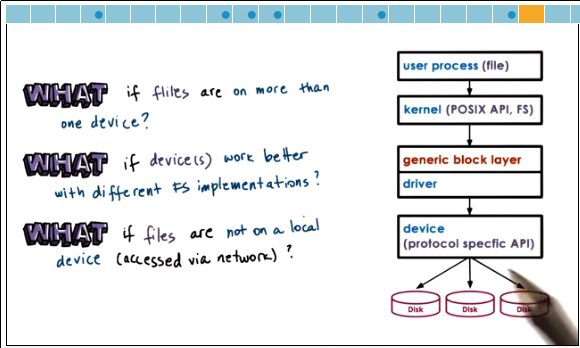 WHAT if fliles are on more than
one device?
WHAT if device(s) work better
with different FS implementations?
WHAT if files are not on a local
device (accessed via network)?
user process (file)
kernel (POSIX API, FS)
generic block layer
driver
device
(protocol specfic API)
Disk
Disk
Disk